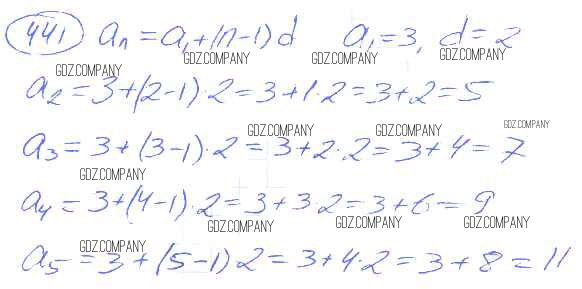 441 aₙ = a₁ + (n-1) d a₁ = 3, d = 2
GDZ.COMPANY GDZ.COMPANY GDZ.COMPANY GDZ.COMPANY
a₂ = 3 + (2-1) · 2 = 3 + 1 · 2 = 3 + 2 = 5
GDZ.COMPANY GDZ.COMPANY GDZ.COMPANY
a₃ = 3 + (3-1) · 2 = 3 + 2 · 2 = 3 + 4 = 7
GDZ.COMPANY
a₄ = 3 + (4-1) · 2 = 3 + 3 · 2 = 3 + 6 = 9
GDZ.COMPANY GDZ.COMPANY GDZ.COMPANY GDZ.COMPANY
a₅ = 3 + (5-1) · 2 = 3 + 4 · 2 = 3 + 8 = 11